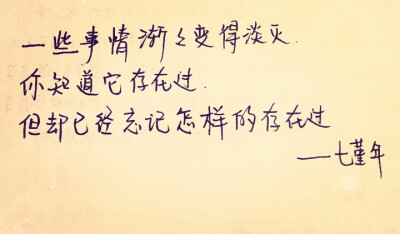 一些事情渐々变得淡灭.
你知道它存在过.
但却已经忘记怎样的存在过
——七堇年